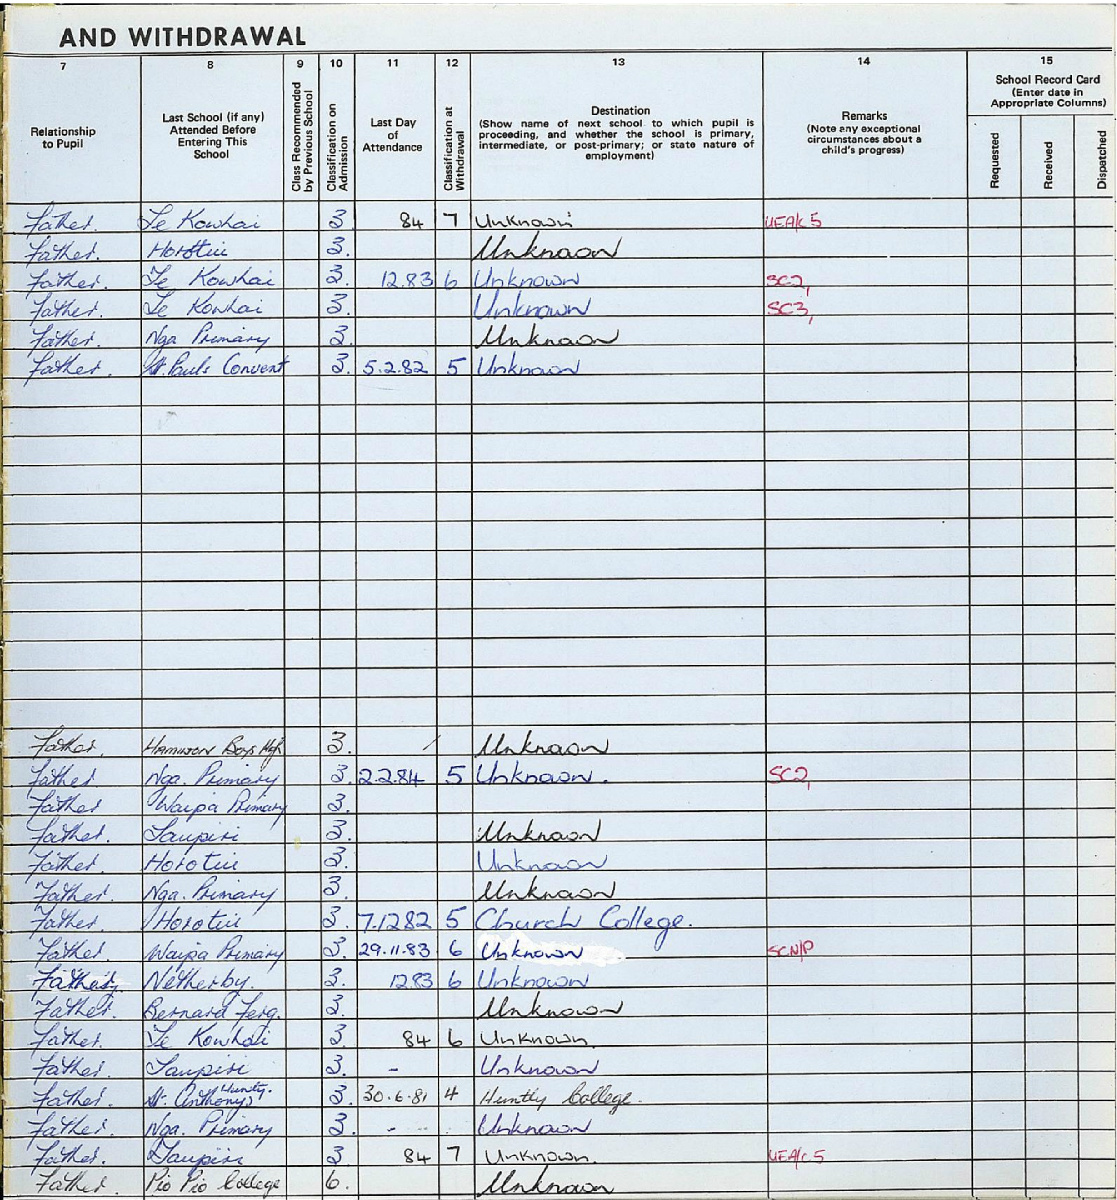 AND WITHDRAWAL
7 8 9 10 11 12 13 14 15
Relationship to Pupil
Last School (if any) Attended Before Entering This School
Class Recommended by Previous School
Classification on Admission
Last Day of Attendance
Classification at Withdrawal
Destination
(Show name of next school to which pupil is proceeding, and whether the school is primary, intermediate, or post-primary; or state nature of employment)
Remarks
(Note any exceptional circumstances about a child's progress)
School Record Card
(Enter date in Appropriate Columns)
Requested Received Dispatched
Father. Te Kowhai 3 84 7 Unknown UEA/c 5
Father. Horotiu 3. Unknown
Father. Te Kowhai 3. 12.83 6 Unknown SC2,
Father. Te Kowhai 3. Unknown SC3,
Father. Nga Primary 3. Unknown
Father. St. Pauls Convent 3. 5.2.82 5 Unknown
Father. Hamilton Boys High 3. Unknown
Father Nga. Primary 3. 2.2.84 5 Unknown. SC2,
Father. Waipa Primary 3.
Father. Taupiri 3. Unknown
Father. Horotiu 3. Unknown
Father. Nga. Primary 3. Unknown
Father Horotiu 3. 7.12.82 5 Church College.
Father Waipa Primary 3. 29.11.83 6 Unknown SCN/P
Father. Netherby. 3. 12.83 6 Unknown
Father. Bernard Ferg. 3. Unknown
Father. Te Kowhai 3. 84 6 Unknown.
Father. Taupiri 3. - Unknown
Father. St. Anthony's Huntly. 3. 30.6.81 4 Huntly College.
Father. Nga. Primary 3. - Unknown
Father. Taupiri 3 84 7 Unknown. UEA/c 5
Father. Pio Pio College 6. Unknown